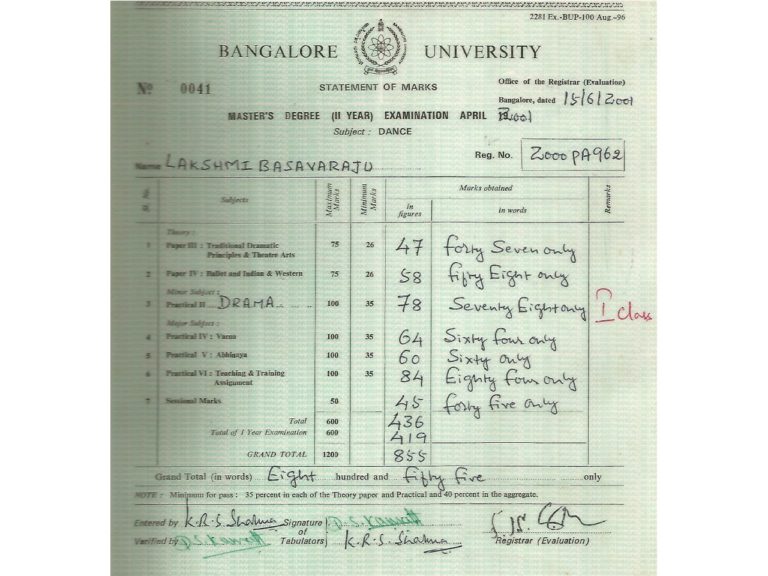 2281 Ex.-BUP-100 Aug.-96
BANGALORE UNIVERSITY
Nº 0041
STATEMENT OF MARKS
Office of the Registrar (Evaluation)
Bangalore, dated 15/6/2001
MASTER'S DEGREE (II YEAR) EXAMINATION APRIL 2001
Subject : DANCE
Reg. No. 2000PA962
Name LAKSHMI BASAVARAJU
Sl. No. Subjects Maximum Marks Minimum Marks Marks obtained Remarks
in figures in words
Theory :
1 Paper III : Traditional Dramatic Principles & Theatre Arts 75 26 47 forty Seven only
2 Paper IV : Ballet and Indian & Western 75 26 58 fifty Eight only
Minor Subject :
3 Practical II DRAMA 100 35 78 Seventy Eight only I class
Major Subject :
4 Practical IV : Varna 100 35 64 Sixty four only
5 Practical V : Abhinaya 100 35 60 Sixty only
6 Practical VI : Teaching & Training Assignment 100 35 84 Eighty four only
7 Sessional Marks 50 45 forty five only
Total 600 436
Total of I Year Examination 600 419
GRAND TOTAL 1200 855
Grand Total (in words) Eight hundred and fifty five only
NOTE : Minimum for pass : 35 percent in each of the Theory paper and Practical and 40 percent in the aggregate.
Entered by K.R.S. Sharma Signature of Tabulators
Verified by K.R.S. Sharma
Registrar (Evaluation)